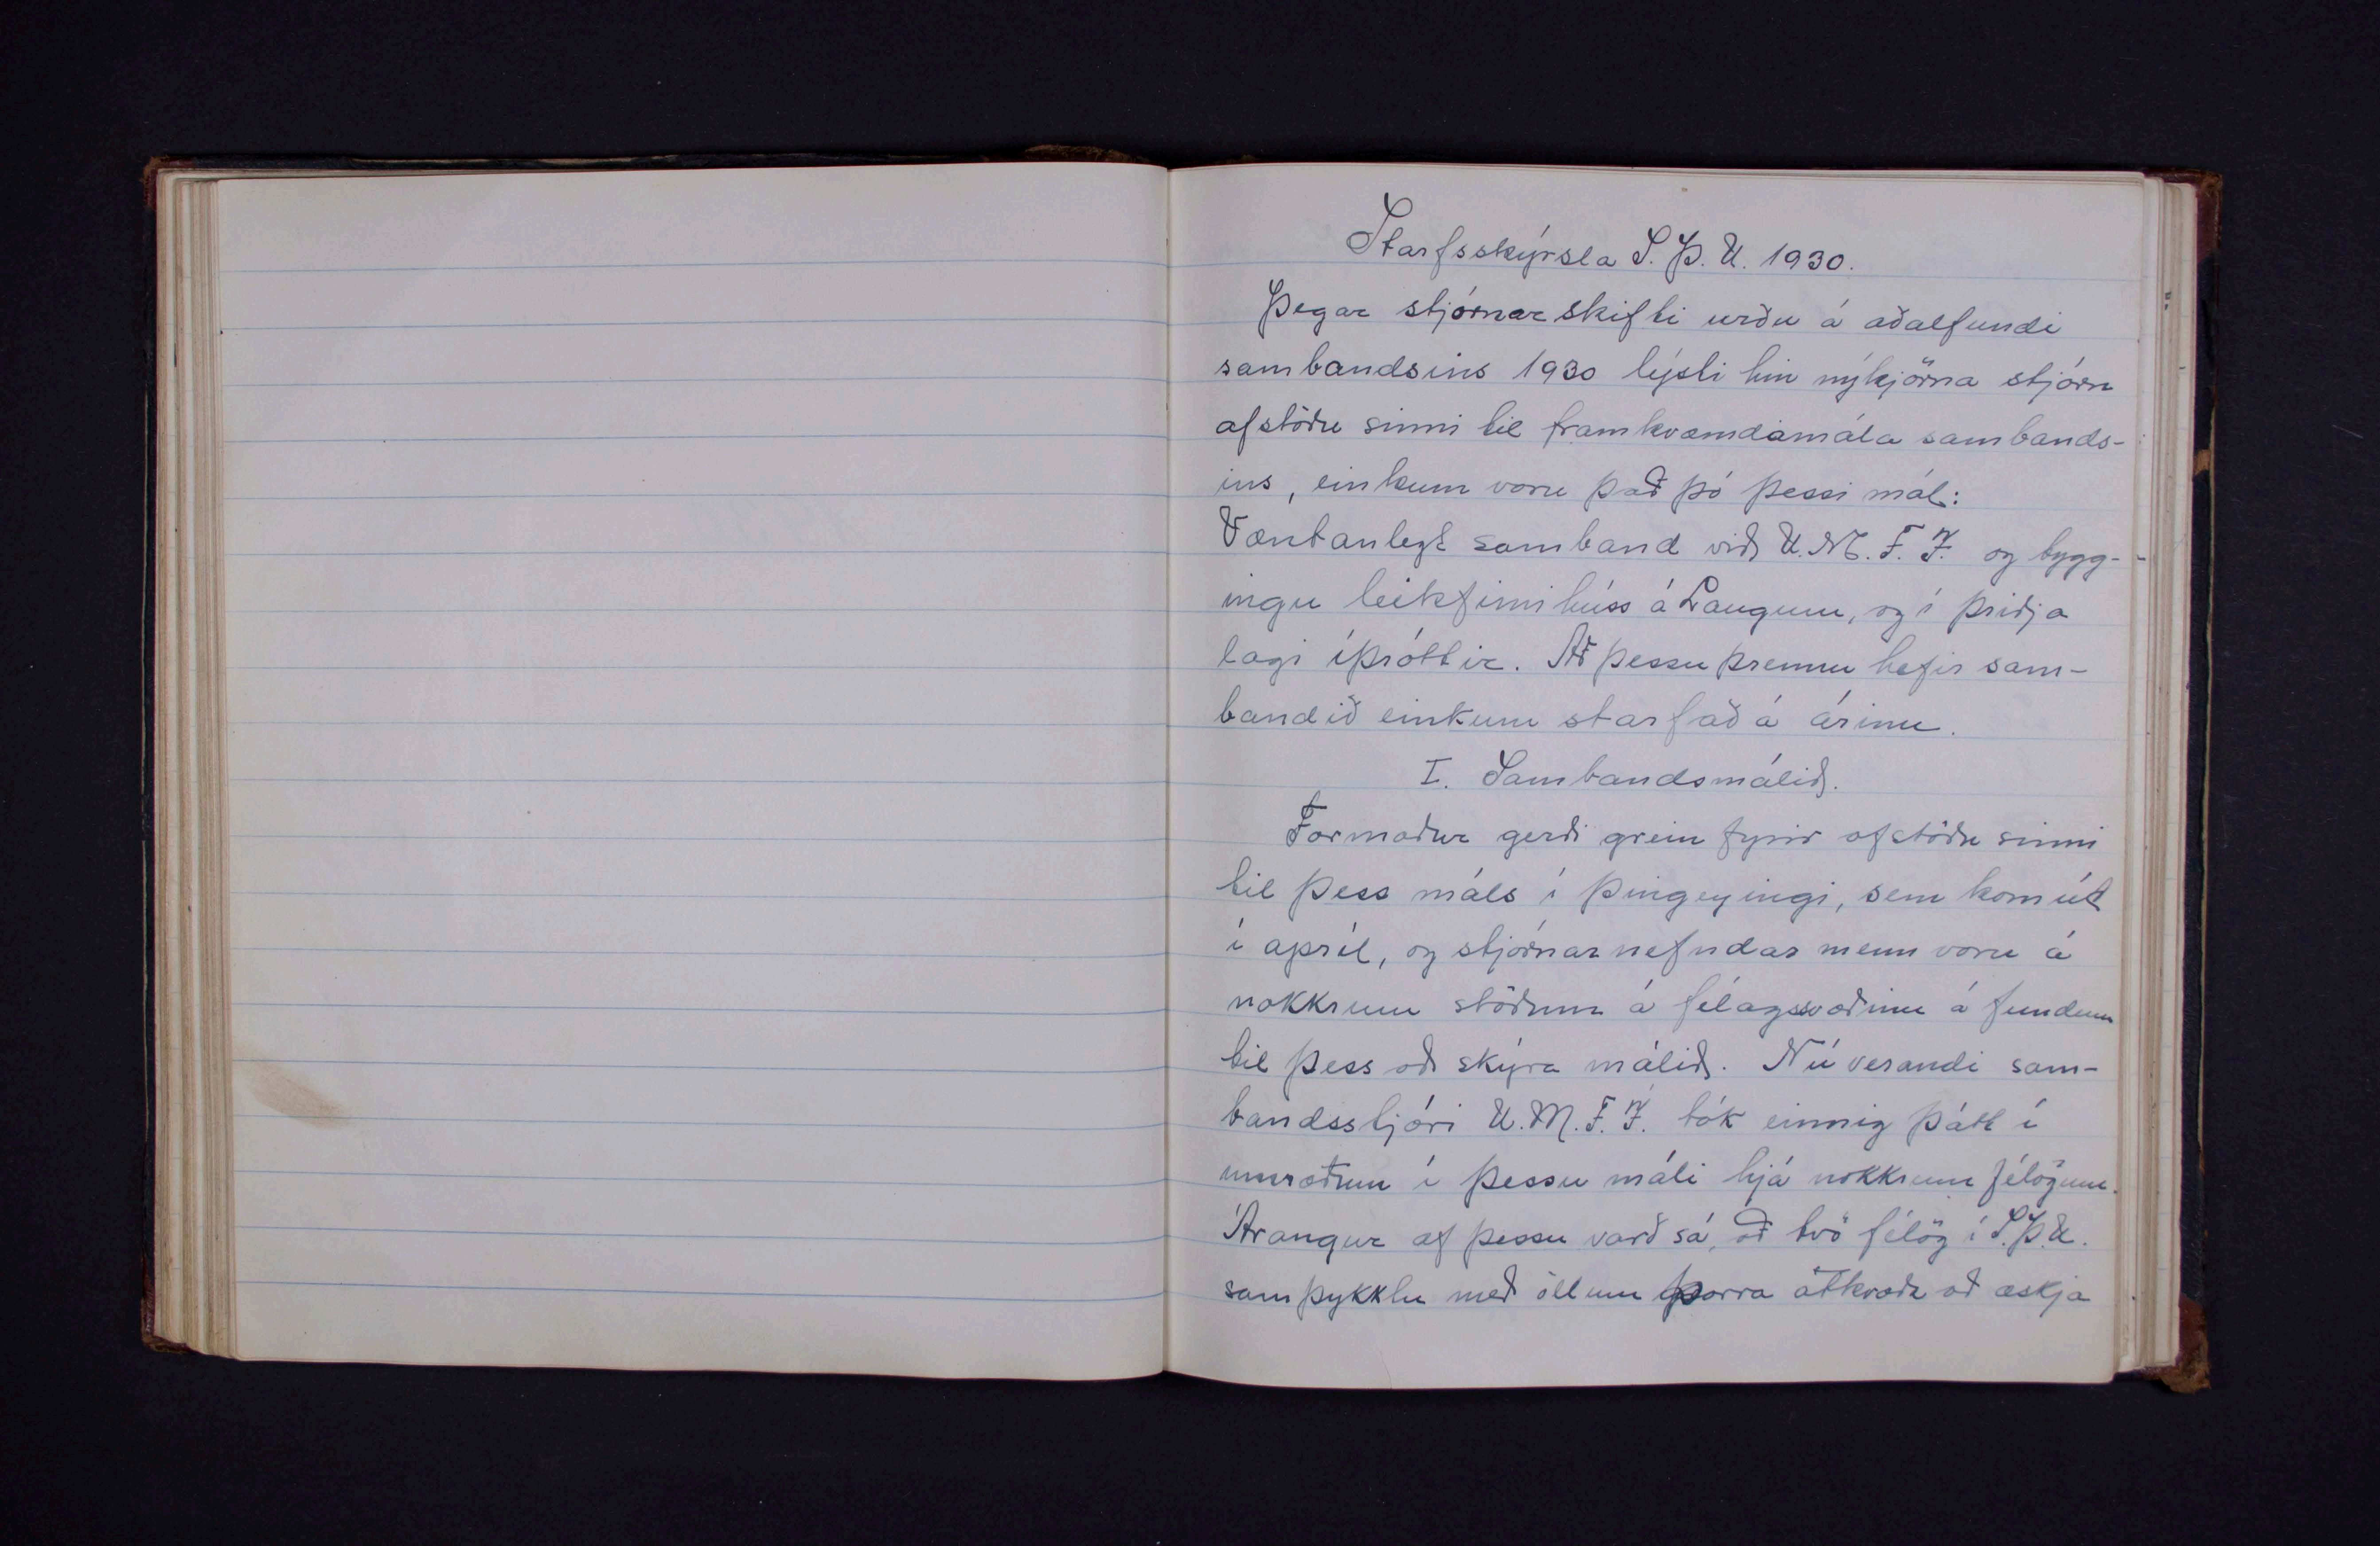 Starfsskýrsla S.Þ.U. 1930.
Þegar stjórnarskifti urðu á aðalfundi
sambandsins 1930 lýsti hin nýkjörna stjórn
afstöðu sinni til framkvæmdamála sambands-
ins, einkum voru það þó þessi mál:
Væntanlegt samband við U.M.F.Í. og bygg-
ingu leikfimihúss á Laugum, og í þriðja
lagi íþróttir. Að þessu þrennu hefir sam-
bandið einkum starfað á árinu.
I. Sambandsmálið.
Formaður gerði grein fyrir afstöðu sinni
til þess máls í Þingeyingi, sem kom út
í apríl, og stjórnarnefndar menn voru á
nokkrum stöðum á félagssvæðinu á fundum
til þess að skýra málið. Núverandi sam-
bandsstjóri U.M.F.Í. tók einnig þátt í
umræðum í þessu máli hjá nokkrum félögum.
Árangur af þessu varð sá, að tvö félög í S.Þ.U.
samþykktu með öllum þorra atkvæða að æskja